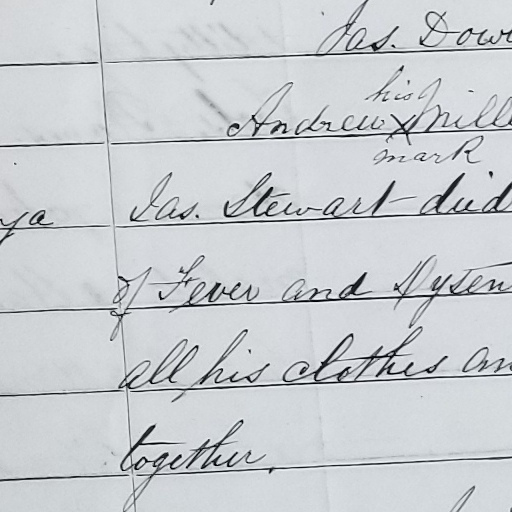 Jas. Dow
his
Andrew X Mill
mark
ya Jas. Stewart died
of Fever and Dysen
all his clothes an
together.